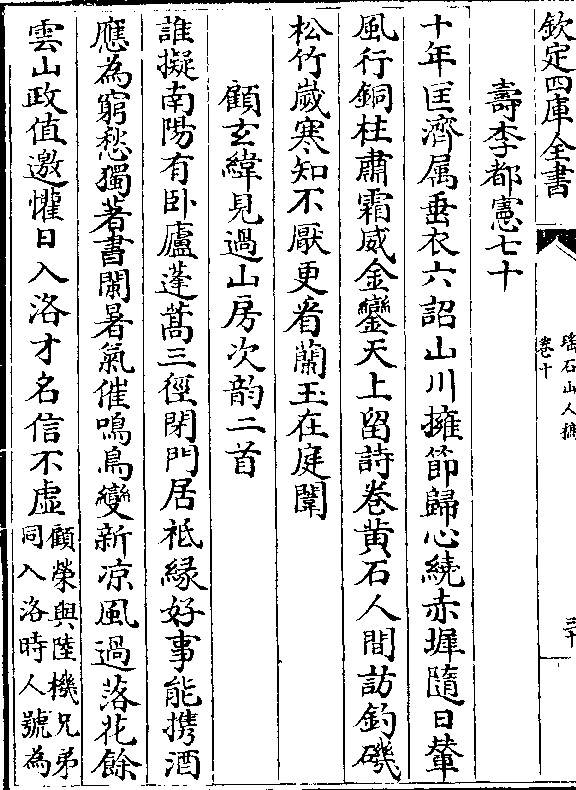 欽定四庫全書
瑤石山人稿
卷十
三十
壽李都憲七十
十年匡濟属垂衣六詔山川擁節歸心繞赤墀隨日輦
風行銅柱肅霜威金鑾天上留詩卷黄石人間訪釣磯
松竹嵗寒知不厭更看蘭玉在庭闈
顧玄緯見過山房次韵二首
誰擬南陽有卧廬蓬蒿三徑閉門居袛縁好事能携酒
應為窮愁獨著書闌暑氣催鳴鳥變新凉風過落花餘
雲山政值邀懽日入洛才名信不虚
顧榮與陸機兄弟
同入洛時人號為